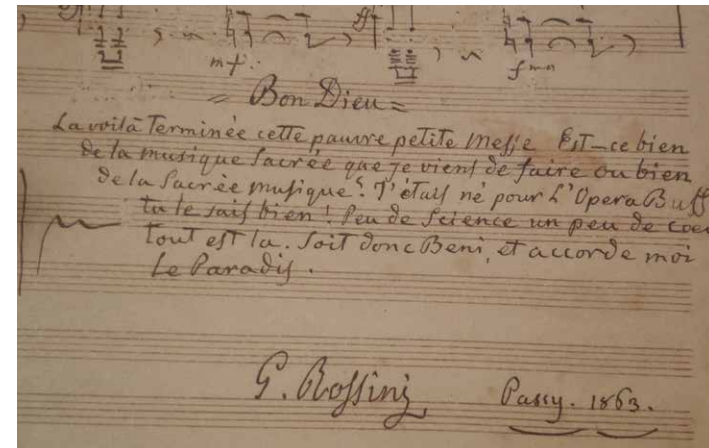 mf.
f
= Bon Dieu =
La voilà Terminée cette pauvre petite Messe Est-ce bien
de la musique Sacrée que je vient de faire ou bien
de la Sacrée musique? J'étais né pour L'Opera Buff
tu le sais bien! Peu de Science un peu de coeu
tout est la. Soit donc Beni, et accorde moi
Le Paradis.
G. Rossini Passy. 1863.